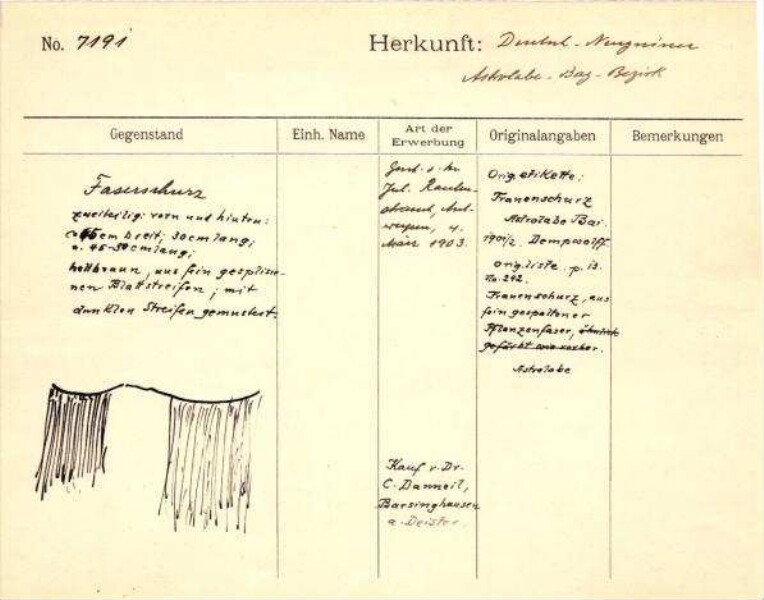 No. 7191
Herkunft: Deutsch-Neuguinea
Astrolabe-Bay-Bezirk
Gegenstand
Einh. Name
Art der Erwerbung
Originalangaben
Bemerkungen
Faserschurz
zweiteilig: vorn und hinten:
breit; 30cm lang;
u. 45-50cm lang;
hellbraun, aus fein gesplisse-
nen Blattstreifen; mit
dunklen Streifen gemustert.
Jul.
März 1903.
Kauf v. Dr.
C. Danneil,
Barsinghausen
a. Deister.
Orig. etikette:
Frauenschurz
Astrolabe Bai.
1901/2. Dempwolff
orig. liste. p. 13.
No. 242.
Frauenschurz, aus
fein gespaltener
Pflanzenfaser, ähnlich
gefärbt wie vorher.
Astrolabe